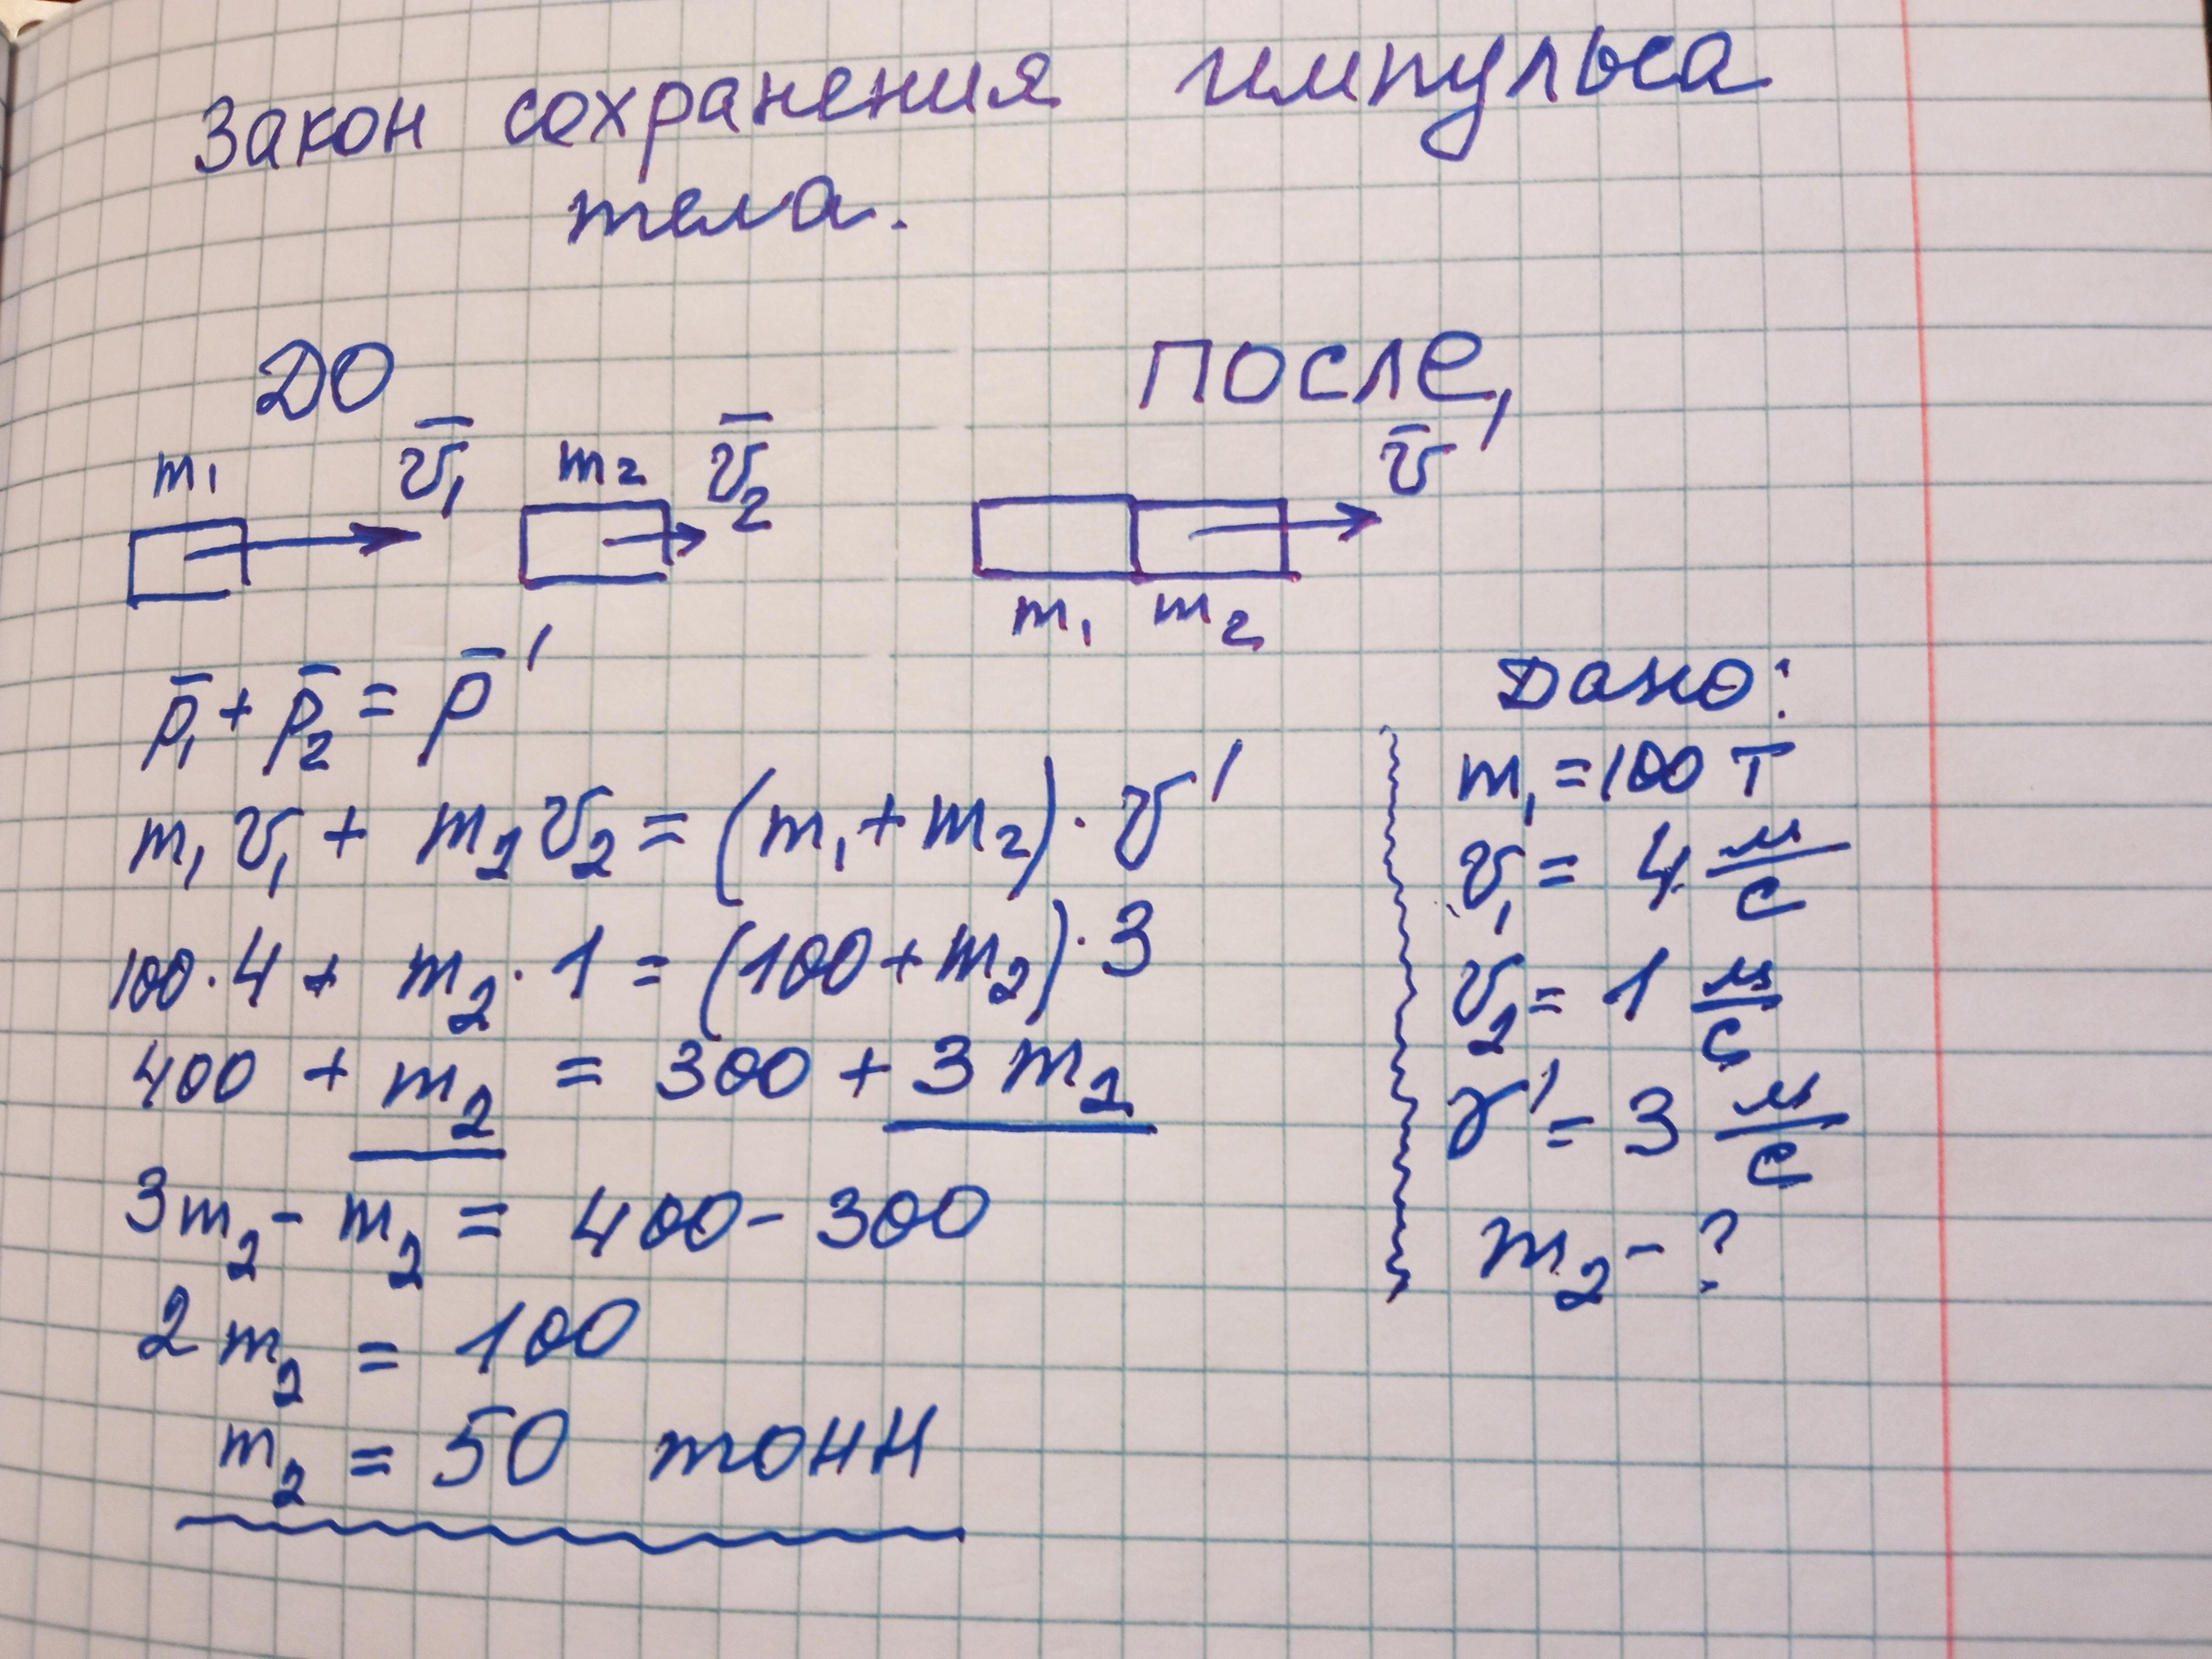 Закон сохранения импульса
тела.
ДО
ПОСЛЕ
m₁ v̅₁ m₂ v̅₂
v̅'
m₁ m₂
p̅₁ + p̅₂ = p̅'
m₁ v₁ + m₂ v₂ = (m₁ + m₂) · v'
100 · 4 + m₂ · 1 = (100 + m₂) · 3
400 + m₂ = 300 + 3 m₂
3m₂ - m₂ = 400 - 300
2 m₂ = 100
m₂ = 50 тонн
Дано:
m₁ = 100 т
v₁ = 4 м/с
v₂ = 1 м/с
v' = 3 м/с
m₂ - ?